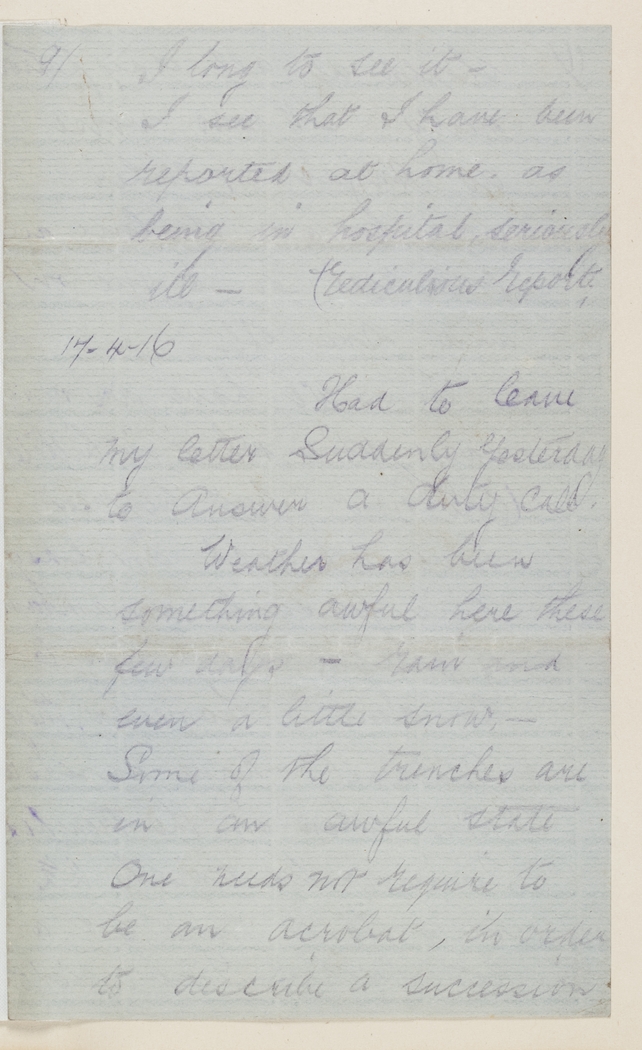 9/ I long to see it -
I see that I have been
reported at home. as
being in hospital, seriously
ill — (rediculous report.
17-4-16
Had to leave
my letter Suddenly yesterday
to Answer a duty call.
Weather has been
something awful here these
few days - rain and
even a little snow, —
Some of the trenches are
in an awful state
One needs not require to
be an acrobat, in order
to describe a succession